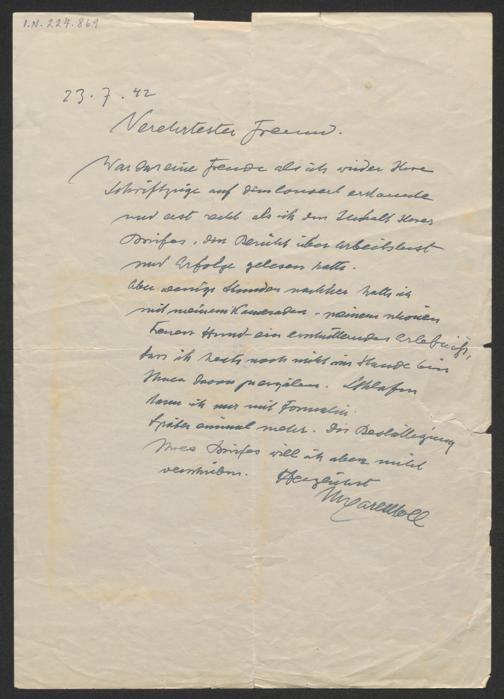 I.N. 224.861
23.7.42
Verehrtester Freund.
War das eine Freude als ich wieder Ihre
Schriftzüge auf dem Couvert erkannte
und erst recht als ich den Inhalt Ihres
Briefes, den Bericht über Arbeitslust
und Erfolge gelesen hatte.
Aber wenige Stunden nachher hatte ich
mit meinem Kameraden - meinem schönen
treuen Hund ein erschütterndes Erlebniß,
dass ich heute noch nicht im Stande bin
Ihnen davon zu erzälen. Schlafen
kann ich nur mit
Später einmal mehr. Die Bestättigung
Ihres Briefes will ich aber nicht
verschieben. Herzlichst
Ihr Carl Moll